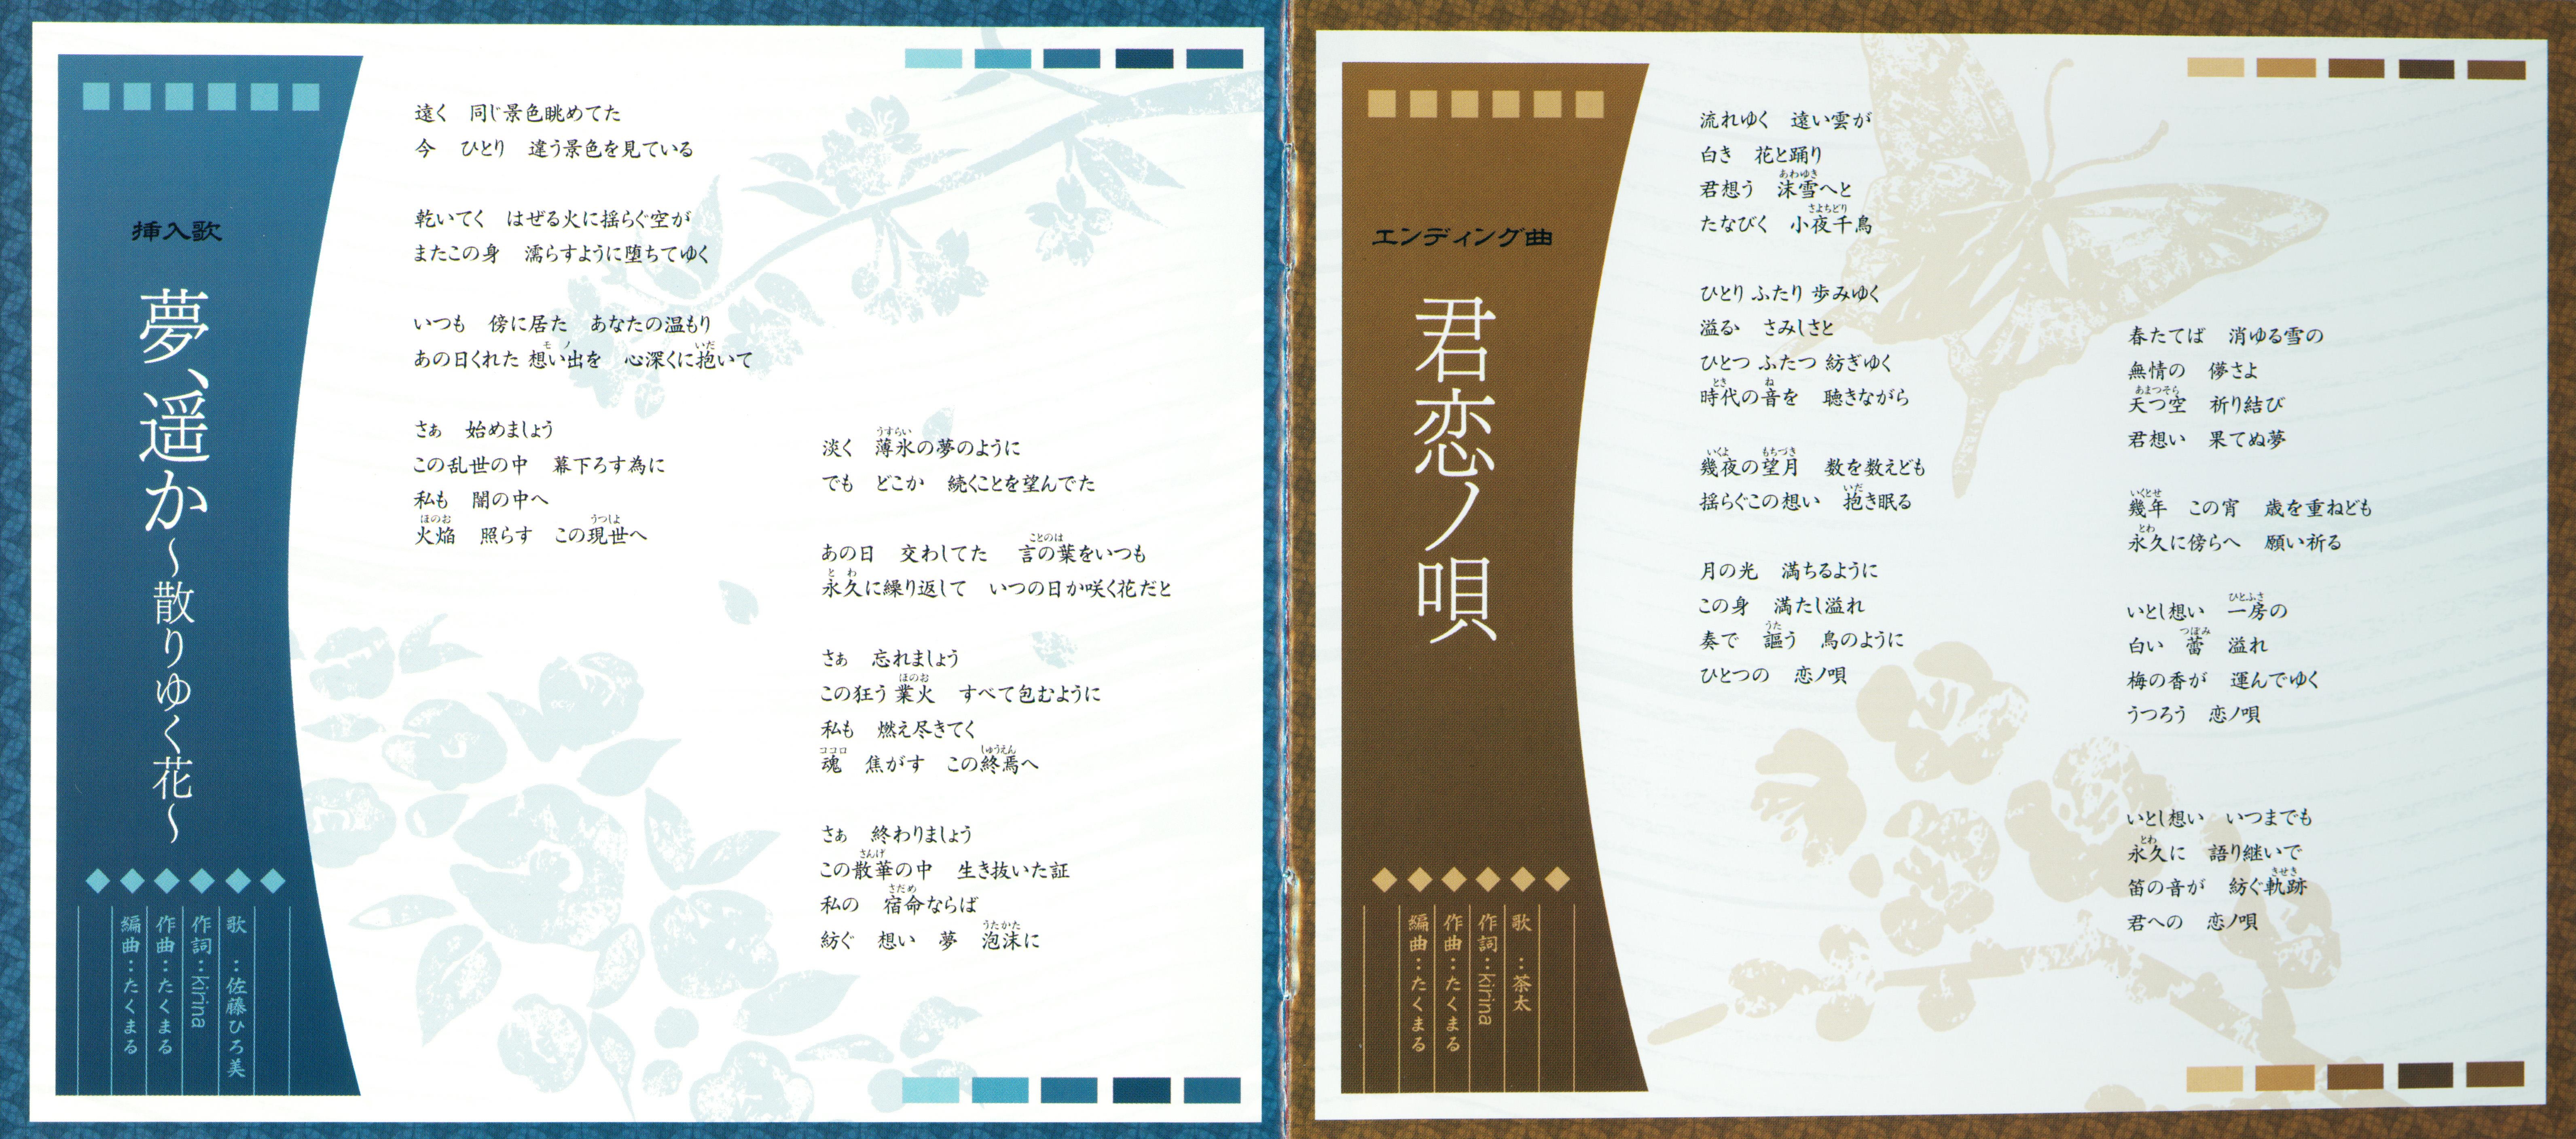 挿入歌
夢、遥か～散りゆく花～
歌　：佐藤ひろ美
作詞：kirina
作曲：たくまる
編曲：たくまる
遠く　同じ景色眺めてた
今　ひとり　違う景色を見ている
乾いてく　はぜる火に揺らぐ空が
またこの身　濡らすように堕ちてゆく
いつも　傍に居た　あなたの温もり
モノ　いだ
あの日くれた 想い出を　心深くに抱いて
さぁ　始めましょう
この乱世の中　幕下ろす為に
私も　闇の中へ
ほのお　うつしよ
火焔　照らす　この現世へ
うすらい
淡く　薄氷の夢のように
でも　どこか　続くことを望んでた
ことのは
あの日　交わしてた　言の葉をいつも
とわ
永久に繰り返して　いつの日か咲く花だと
さぁ　忘れましょう
ほのお
この狂う 業火　すべて包むように
私も　燃え尽きてく
ココロ　しゅうえん
魂　焦がす　この終焉へ
さぁ　終わりましょう
さんげ
この散華の中　生き抜いた証
さだめ
私の　宿命ならば
うたかた
紡ぐ　想い　夢　泡沫に
エンディング曲
君恋ノ唄
歌　：茶太
作詞：kirina
作曲：たくまる
編曲：たくまる
流れゆく　遠い雲が
白き　花と踊り
あわゆき
君想う　沫雪へと
さよちどり
たなびく　小夜千鳥
ひとり ふたり 歩みゆく
溢るゝ　さみしさと
ひとつ ふたつ 紡ぎゆく
とき　ね
時代の音を　聴きながら
いくよ　もちづき
幾夜の望月　数を数えども
いだ
揺らぐこの想い　抱き眠る
月の光　満ちるように
この身　満たし溢れ
うた
奏で　謳う　鳥のように
ひとつの　恋ノ唄
春たてば　消ゆる雪の
無情の　儚さよ
あまつそら
天つ空　祈り結び
君想い　果てぬ夢
いくとせ
幾年　この宵　歳を重ねども
とわ
永久に傍らへ　願い祈る
ひとふさ
いとし想い　一房の
つぼみ
白い　蕾　溢れ
梅の香が　運んでゆく
うつろう　恋ノ唄
いとし想い　いつまでも
とわ
永久に　語り継いで
きせき
笛の音が　紡ぐ軌跡
君への　恋ノ唄